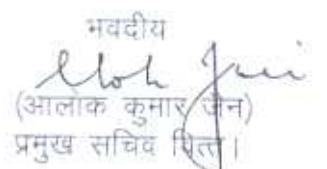 भवदीय
(आलोक कुमार जैन)
प्रमुख सचिव वित्त।